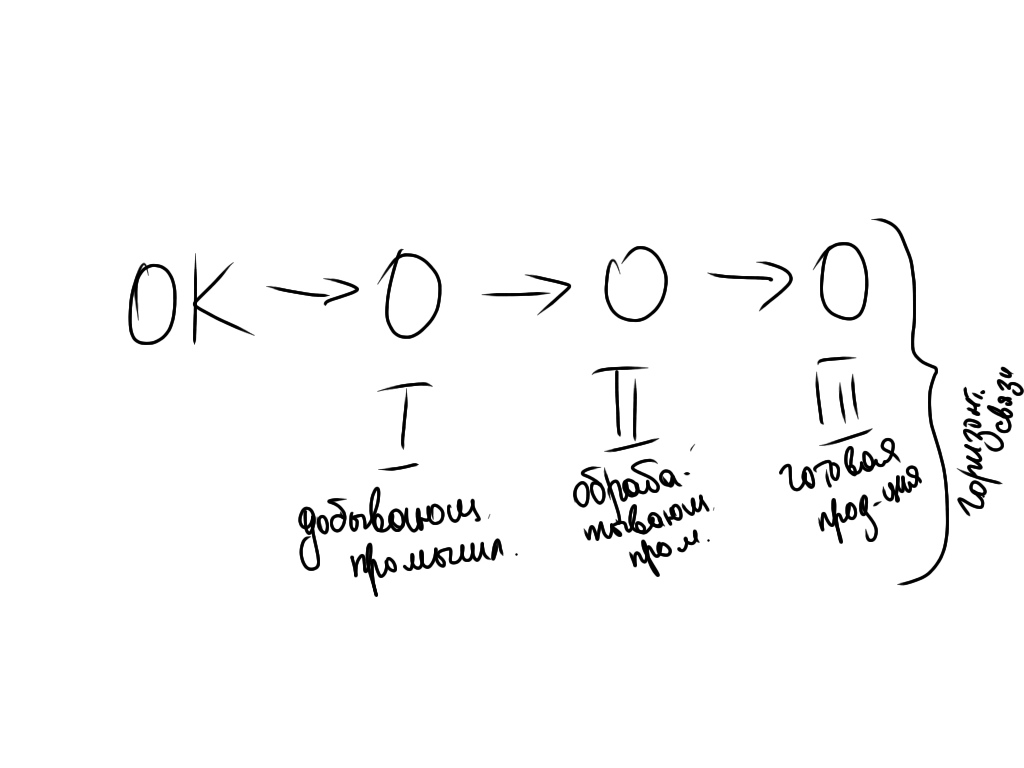 ОК → О → О → О
I II III
добывающ.
промышл.
обраба-
тывающ.
пром.
готовая
прод-ция
горизонт.
связи